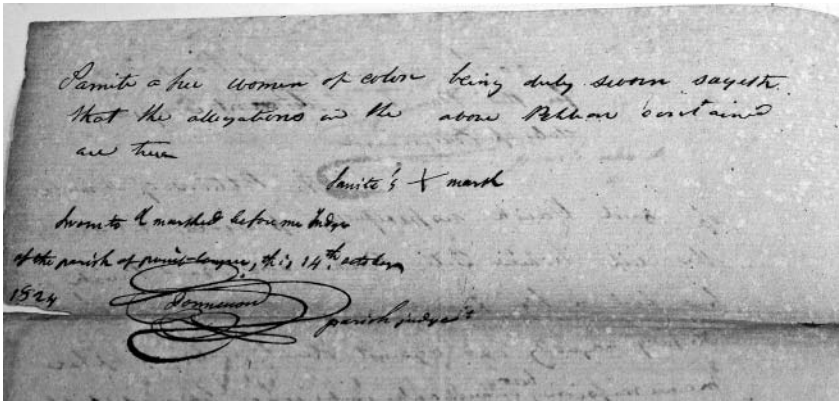 Sanite a free women of color being duly sworn sayeth
that the allegations in the above Petition contained
are true
Sanite's X mark
Sworn to & marked before me Judge
of the parish of point-coupee, this 14th october
1824
parish judge